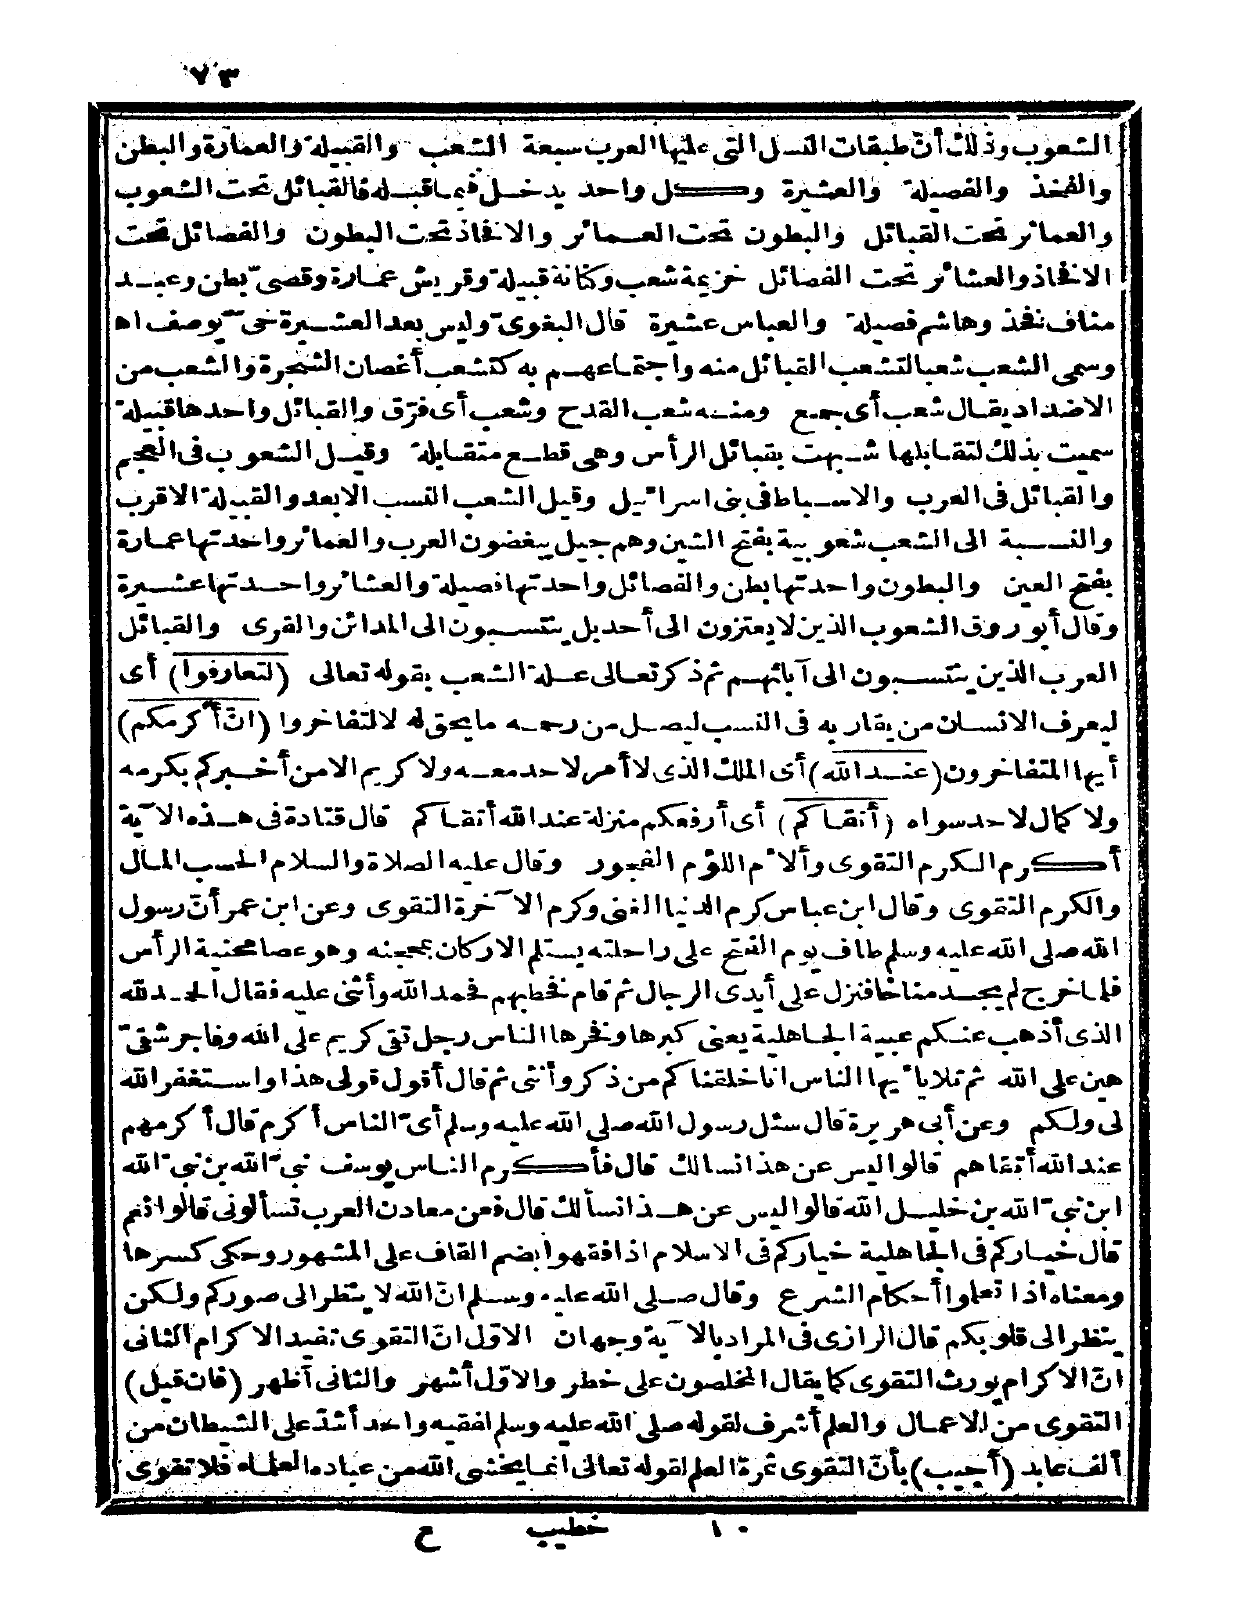 ٧٣
الشعوب وذلك أنّ طبقات النسل التى عليها العرب سبعة الشعب والقبيلة والعمارة والبطن
والفخذ والفصيلة والعشيرة وكل واحد يدخل فيما قبله فالقبائل تحت الشعوب
والعمائر تحت القبائل والبطون تحت العمائر والافخاذ تحت البطون والفصائل تحت
الافخاذ والعشائر تحت الفصائل خزيمة شعب وكنانة قبيلة وقريش عمارة وقصىّ بطن وعبد
مناف فخذ وهاشم فصيلة والعباس عشيرة قال البغوىّ وليس بعد العشيرة حىّ يوصف اه
وسمى الشعب شعبا لتشعب القبائل منه واجتماعهم به كتشعب أغصان الشجرة والشعب من
الاضداد يقال شعب أى جمع ومنه شعب القدح وشعب أى فرّق والقبائل واحدها قبيلة
سميت بذلك لتقابلها شبهت بقبائل الرأس وهى قطع متقابلة وقيل الشعوب فى العجم
والقبائل فى العرب والاسباط فى بنى اسرائيل وقيل الشعب النسب الابعد والقبيلة الاقرب
والنسبة الى الشعب شعوبية بفتح الشين وهم جيل يبغضون العرب والعمائر واحدتها عمارة
بفتح العين والبطون واحدتها بطن والفصائل واحدتها فصيلة والعشائر واحدتها عشيرة
وقال أبو روق الشعوب الذين لا يعتزون الى أحد بل ينتسبون الى المدائن والقرى والقبائل
العرب الذين ينتسبون الى آبائهم ثم ذكر تعالى علة الشعب بقوله تعالى (لتعارفوا) أى
ليعرف الانسان من يقاربه فى النسب ليصل من رحمه ما يحق له لا لتفاخروا (انّ أكرمكم)
أيها المتفاخرون (عند الله) أى الملك الذى لا أمر لاحد معه ولا كريم الا من أخبركم بكرمه
ولا كمال لاحد سواه (أتقاكم) أى أرفعكم منزلة عند الله أتقاكم قال قتادة فى هذه الآية
أكرم الكرم التقوى وألأم اللؤم الفجور وقال عليه الصلاة والسلام الحسب المال
والكرم التقوى وقال ابن عباس كرم الدنيا الغنى وكرم الآخرة التقوى وعن ابن عمر أنّ رسول
الله صلى الله عليه وسلم طاف يوم الفتح على راحلته يستلم الاركان بمحجنه وهو عصا محنية الرأس
فلما خرج لم يجد مناخا فنزل على أيدى الرجال ثم قام فخطبهم فحمد الله وأثنى عليه فقال الحمد لله
الذى أذهب عنكم عبية الجاهلية يعنى كبرها وفخرها الناس رجل تقى كريم على الله وفاجر شقىّ
هين على الله ثم تلا يا أيها الناس انا خلقناكم من ذكر وأنثى ثم قال أقول قولى هذا واستغفر الله
لى ولكم وعن أبى هريرة قال سئل رسول الله صلى الله عليه وسلم أىّ الناس أكرم قال أكرمهم
عند الله أتقاهم قالوا ليس عن هذا نسالك قال فأكرم الناس يوسف نبىّ الله بن نبىّ الله
ابن نبىّ الله بن خليل الله قالوا ليس عن هذا نسألك قال فعن معادن العرب تسألونى قالوا نعم
قال خياركم فى الجاهلية خياركم فى الاسلام اذا فقهوا بضم القاف على المشهور وحكى كسرها
ومعناه اذا تعلموا أحكام الشرع وقال صلى الله عليه وسلم انّ الله لا ينظر الى صوركم ولكن
ينظر الى قلوبكم قال الرازى فى المراد بالآية وجهان الاوّل انّ التقوى تفيد الاكرام الثانى
انّ الاكرام يورث التقوى كما يقال المخلصون على خطر والاوّل أشهر والثانى أظهر (فان قيل)
التقوى من الاعمال والعلم أشرف لقوله صلى الله عليه وسلم لفقيه واحد أشدّ على الشيطان من
ألف عابد (أجيب) بأنّ التقوى ثمرة العلم لقوله تعالى انما يخشى الله من عباده العلماء فلا تقوى
١٠ خطيب ع